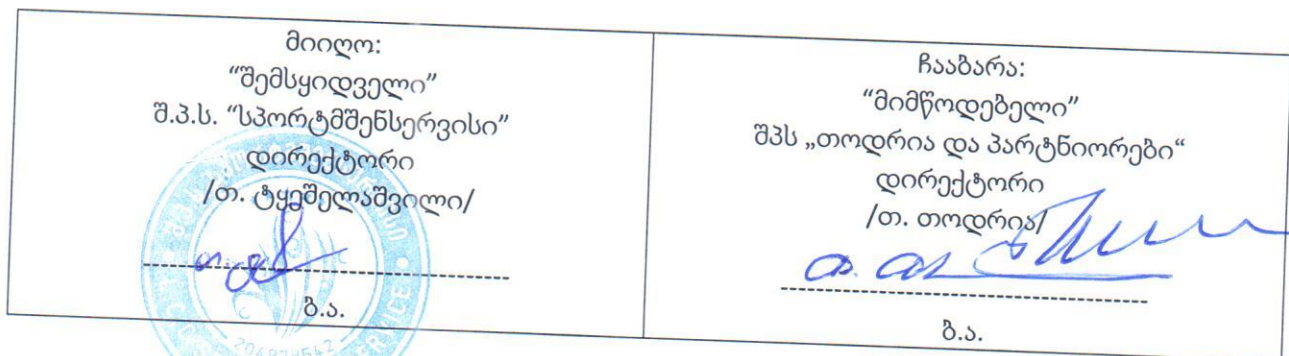 მიიღო:
“შემსყიდველი”
შ.პ.ს. “სპორტმშენსერვისი”
დირექტორი
/თ. ტყეშელაშვილი/
ბ.ა.
ჩააბარა:
“მიმწოდებელი”
შპს „თოდრია და პარტნიორები“
დირექტორი
/თ. თოდრია/
ბ.ა.